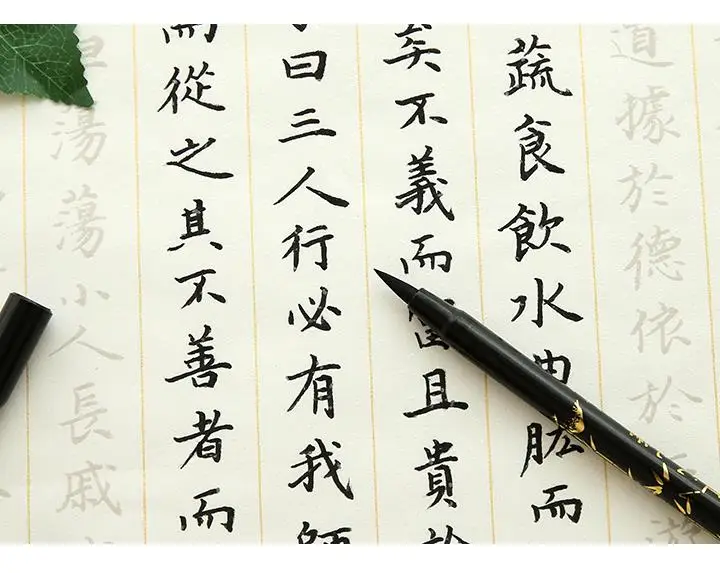 道據於德依於游
蔬食飲水曲肱而
矣不義而富且貴於
曰三人行必有我師
而從之其不善者而
蕩蕩小人長戚